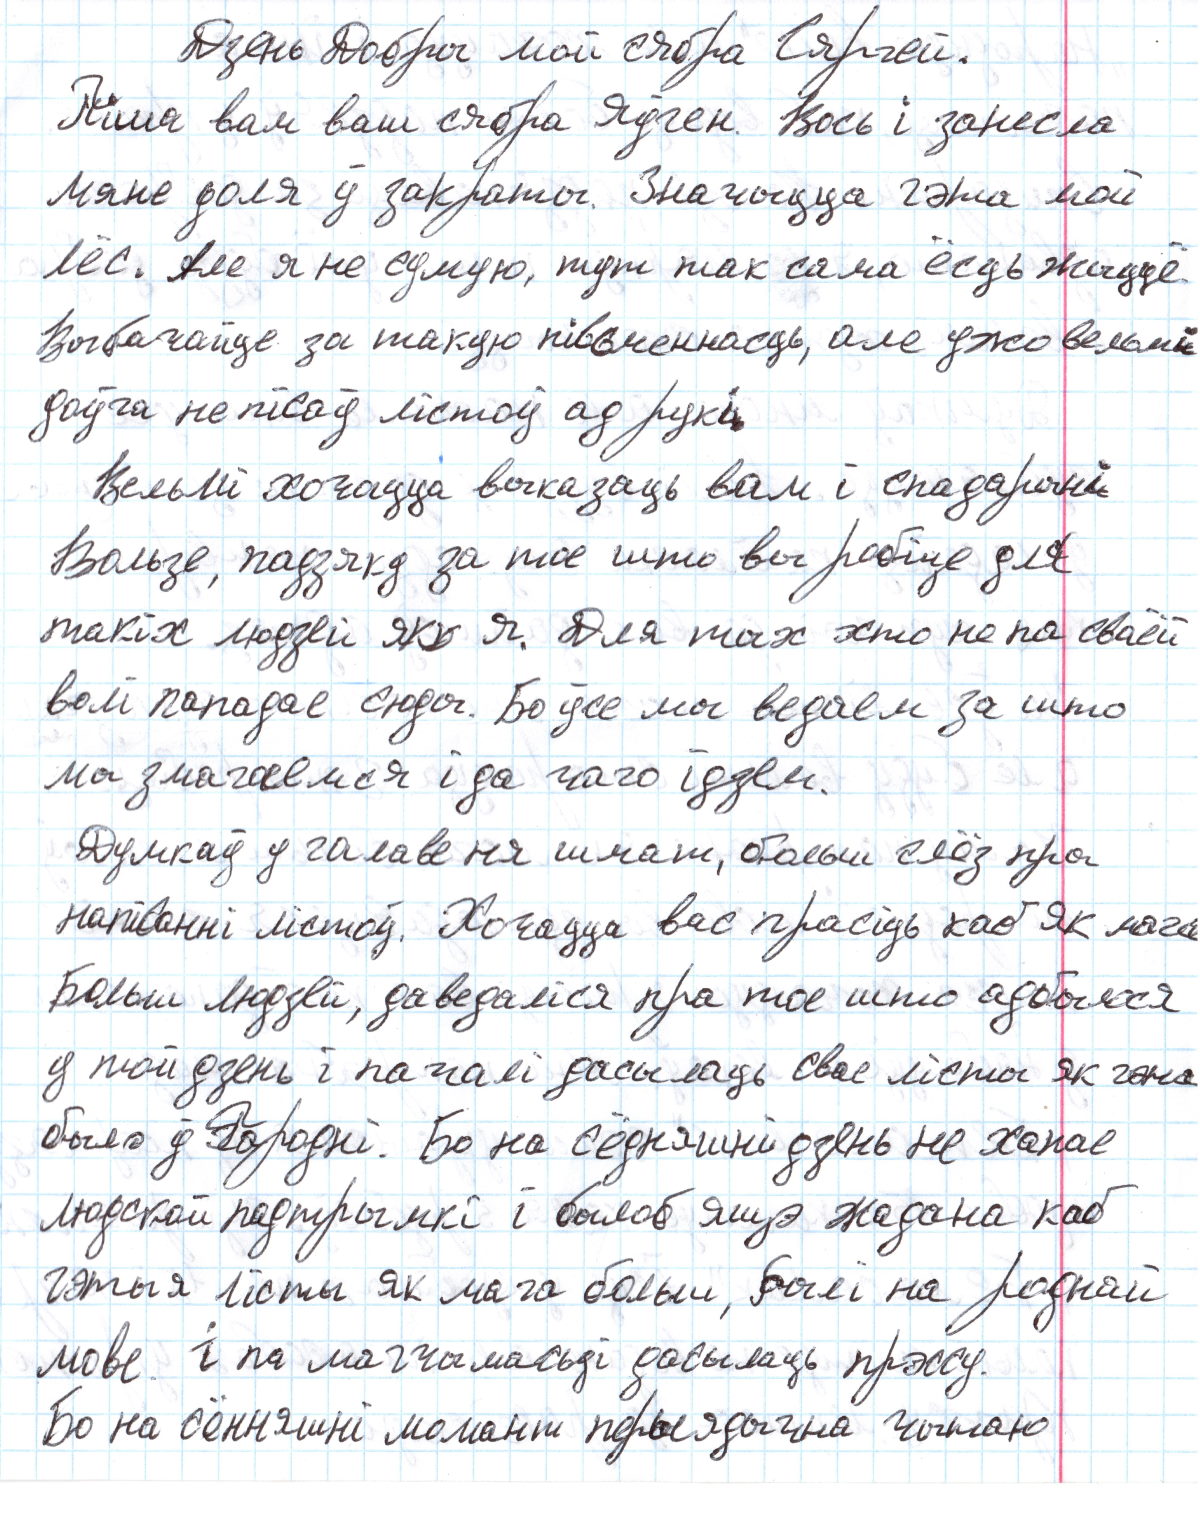 Дзень Добры мой сябра Сяргей.
Піша вам ваш сябра Яўген. Вось і занесла
мяне доля ў закраты. Значыцца гэта мой
лёс. Але я не сумую, тут так сама ёсць жыццё.
Выбачайце за такую пісьменнасць, але ужо вельмі
доўга не пісаў лістоў ад рукі.
Вельмі хочацца выказаць вам і спадарыні
Вользе, падзяку за тое што вы робіце для
такіх людзей як я. Для тых хто не па сваёй
волі пападае сюды. Бо ўсе мы ведаем за што
мы змагаемся і да чаго ідзем.
Думкаў у галаве ня шмат, больш слёз пры
напісанні лістоў. Хочацца вас прасіць каб як мага
больш людзей, даведаліся пра тое што адбылося
у той дзень і пачалі дасылаць свае лісты як гэта
было ў Гародні. Бо на сёдняшні дзень не хапае
людской падтрымкі і былоб яшчэ жадана каб
гэтыя лісты як мага больш, былі на роднай
мове. і па магчымасьці дасылаць прэссу.
Бо на сённяшні момант перыядычна чытаю